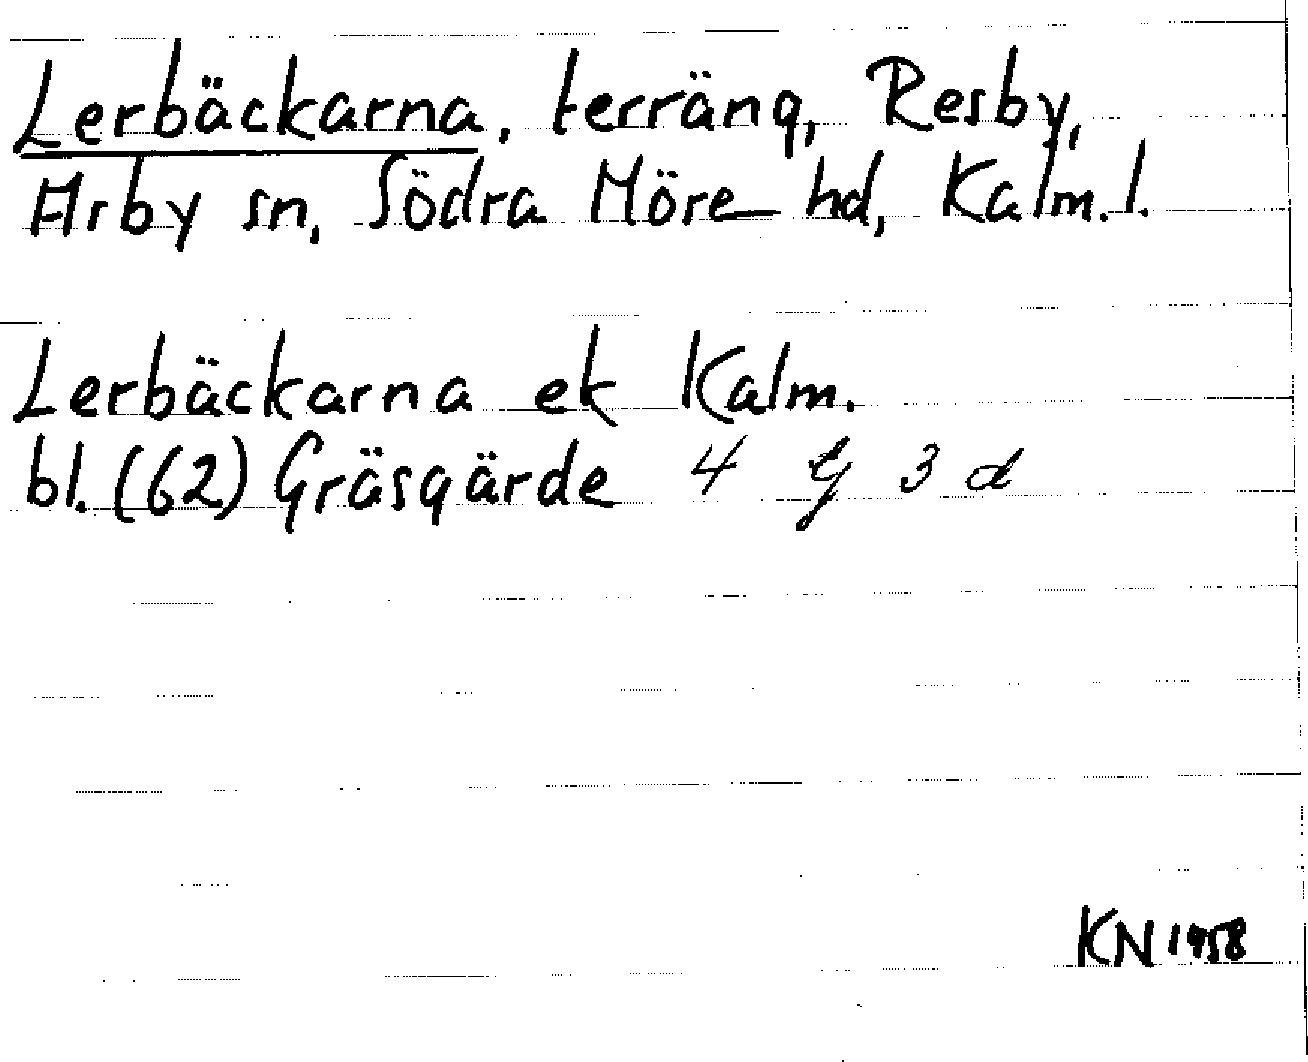 Lerbäckarna, terräng, Resby,
Arby sn, Södra Möre hd, Kalm. l.
Lerbäckarna ek Kalm.
bl. (62) Gräsgärde 4 G 3 d
KN 1958